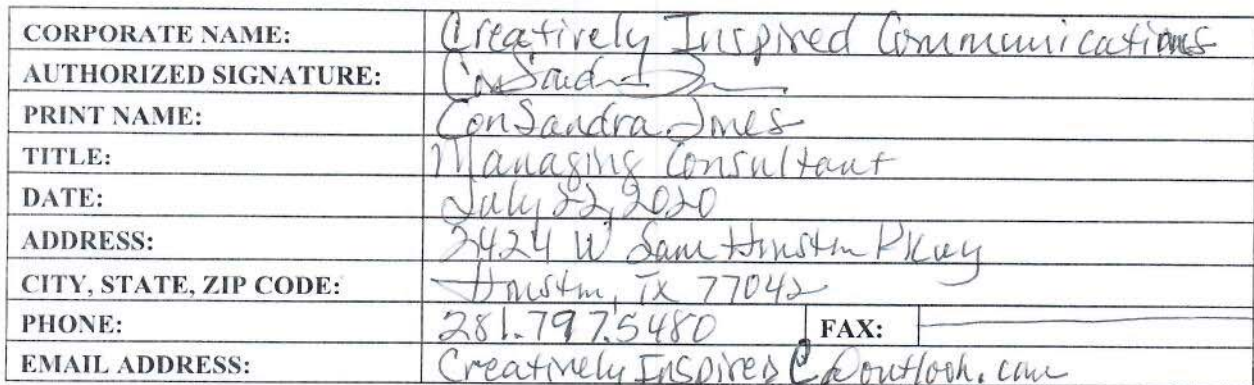 CORPORATE NAME: Creatively Inspired Communications
AUTHORIZED SIGNATURE: ConSandra
PRINT NAME: ConSandra Jones
TITLE: Managing Consultant
DATE: July 22, 2020
ADDRESS: 2424 W Sam Houston Pkwy
CITY, STATE, ZIP CODE: Houston, TX 77042
PHONE: 281.797.5480 FAX:
EMAIL ADDRESS: CreativelyInspiredC@outlook.com